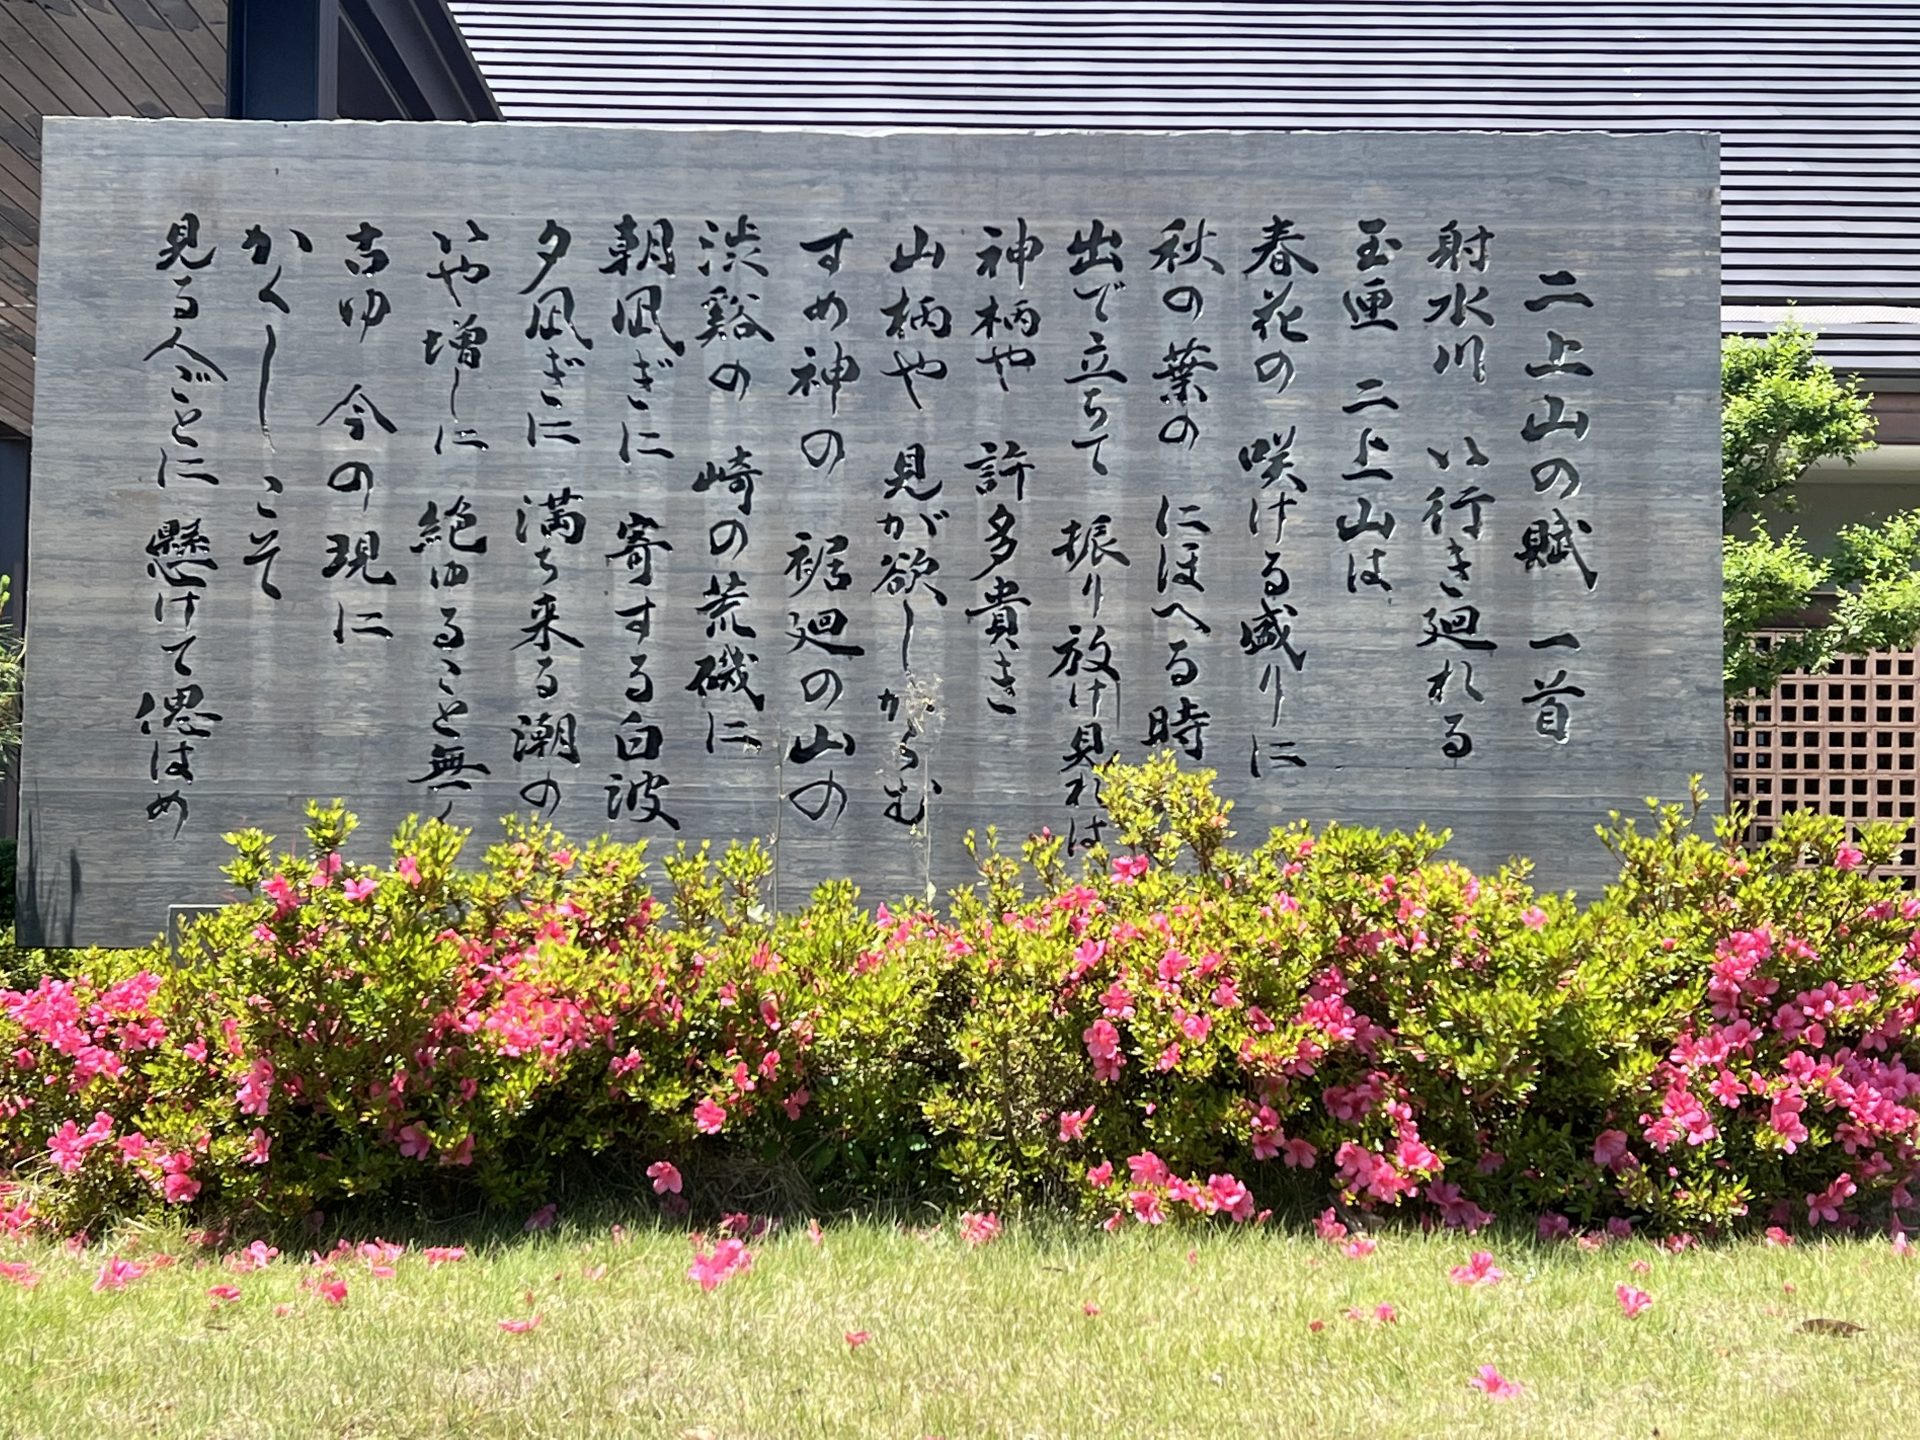 二上山の賦 一首
射水川 い行き廻れる
玉匣 二上山は
春花の 咲ける盛りに
秋の葉の にほへる時
出で立ちて 振り放け見れは
神柄や 許多貴き
山柄や 見が欲しからむ
すめ神の 裾廻の山の
渋谿の 崎の荒磯に
朝凪ぎに 寄する白波
夕凪ぎに 満ち来る潮の
いや増しに 絶ゆること無く
古ゆ 今の現に
かくしこそ
見る人ごとに 懸けて偲はめ